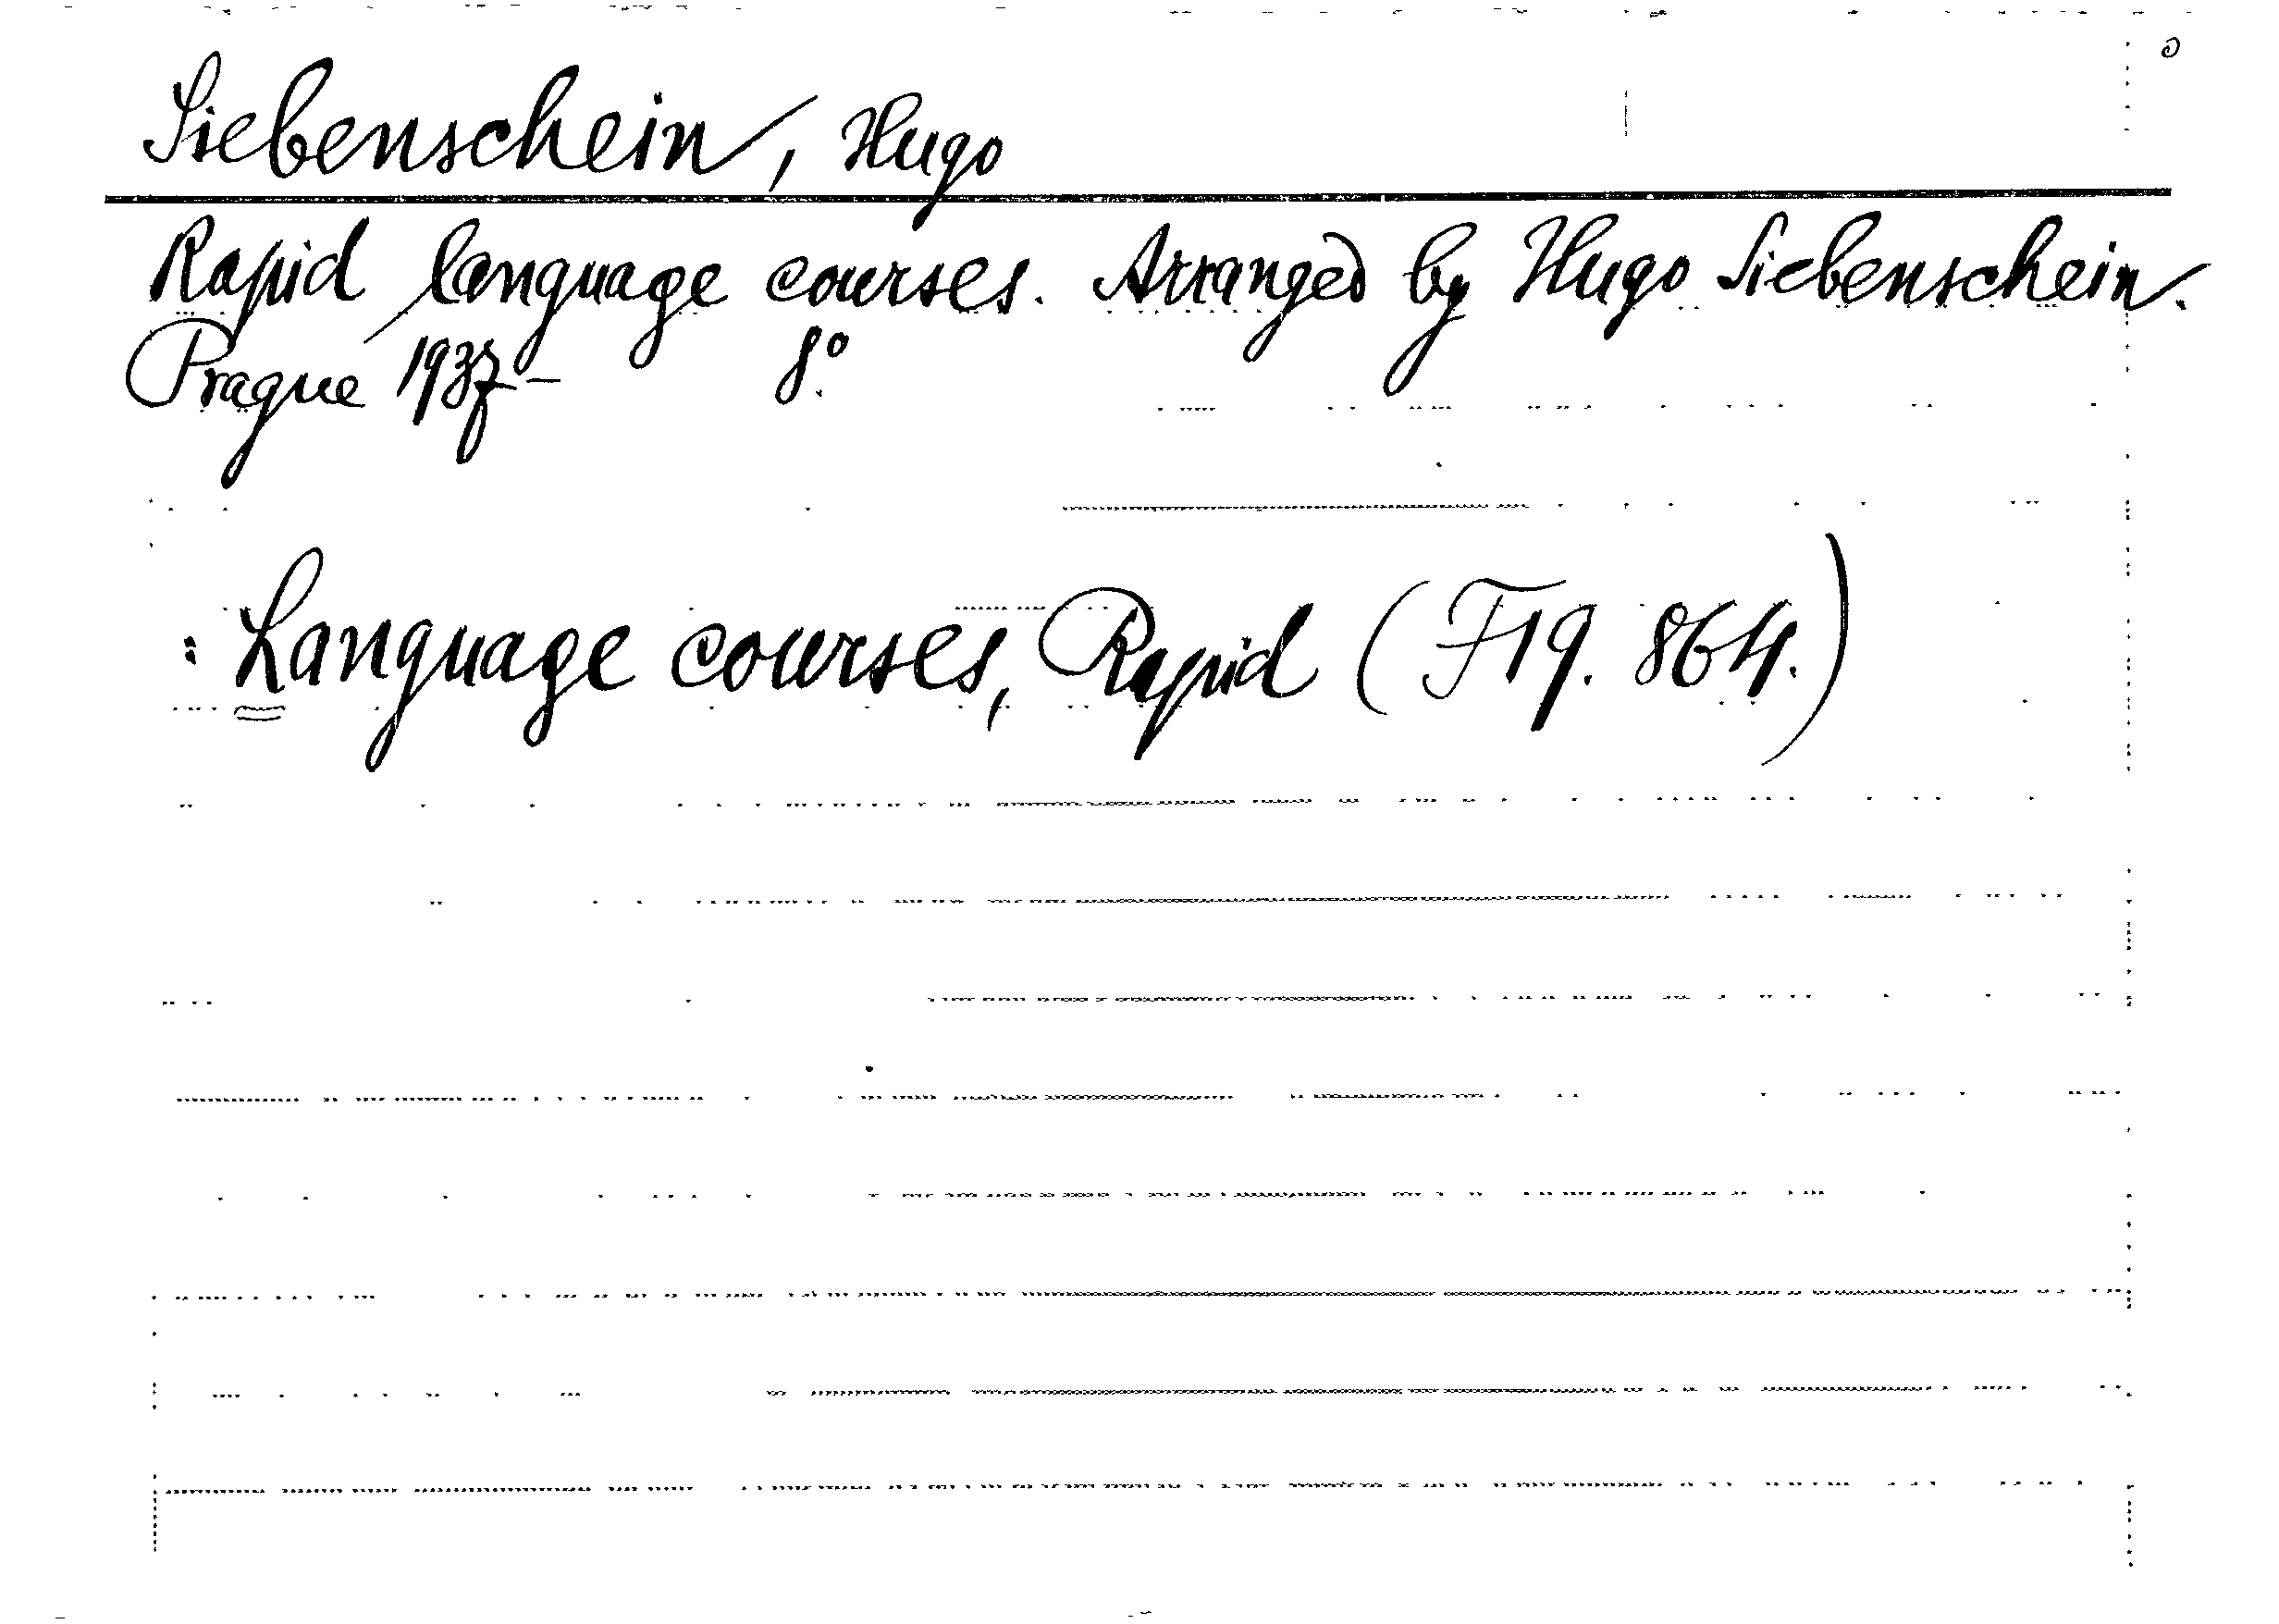 Siebenschein, Hugo
Rapid language courses. Arranged by Hugo Siebenschein.
Prague 1937- 8°.
: Language courses, Rapid (F19. 864.)